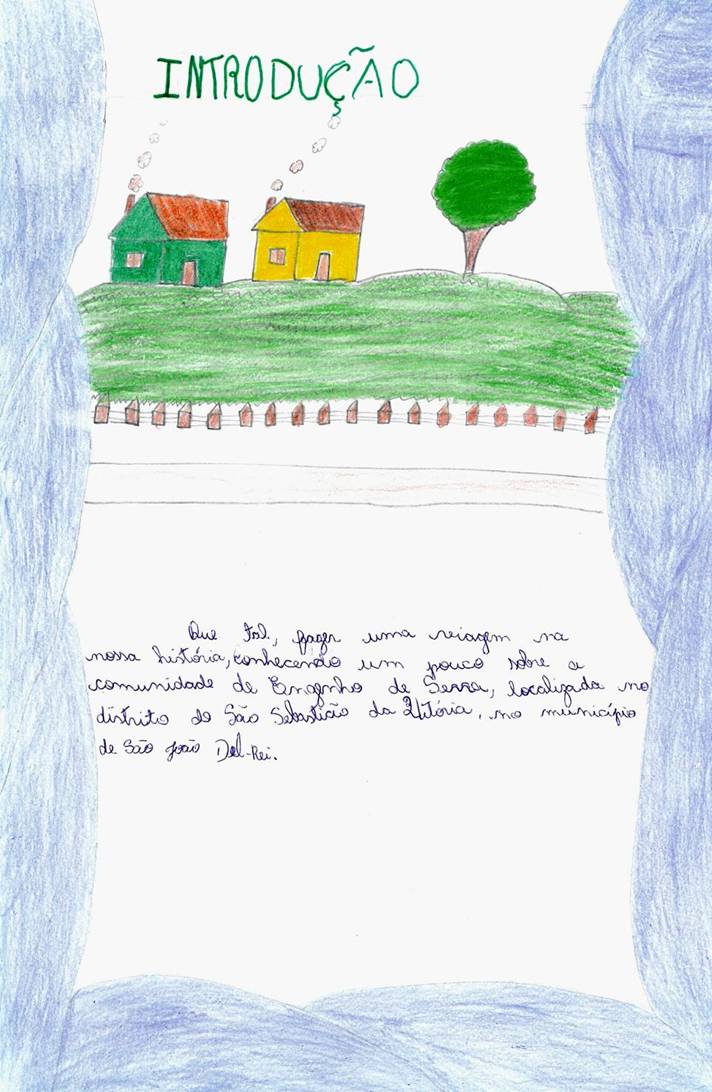 INTRODUÇÃO
Que tal, fazer uma viagem na
nossa história, conhecendo um pouco sobre a
comunidade de Engenho de Serra, localizada no
distrito de São Sebastião da Vitória, no município
de São João Del-Rei.